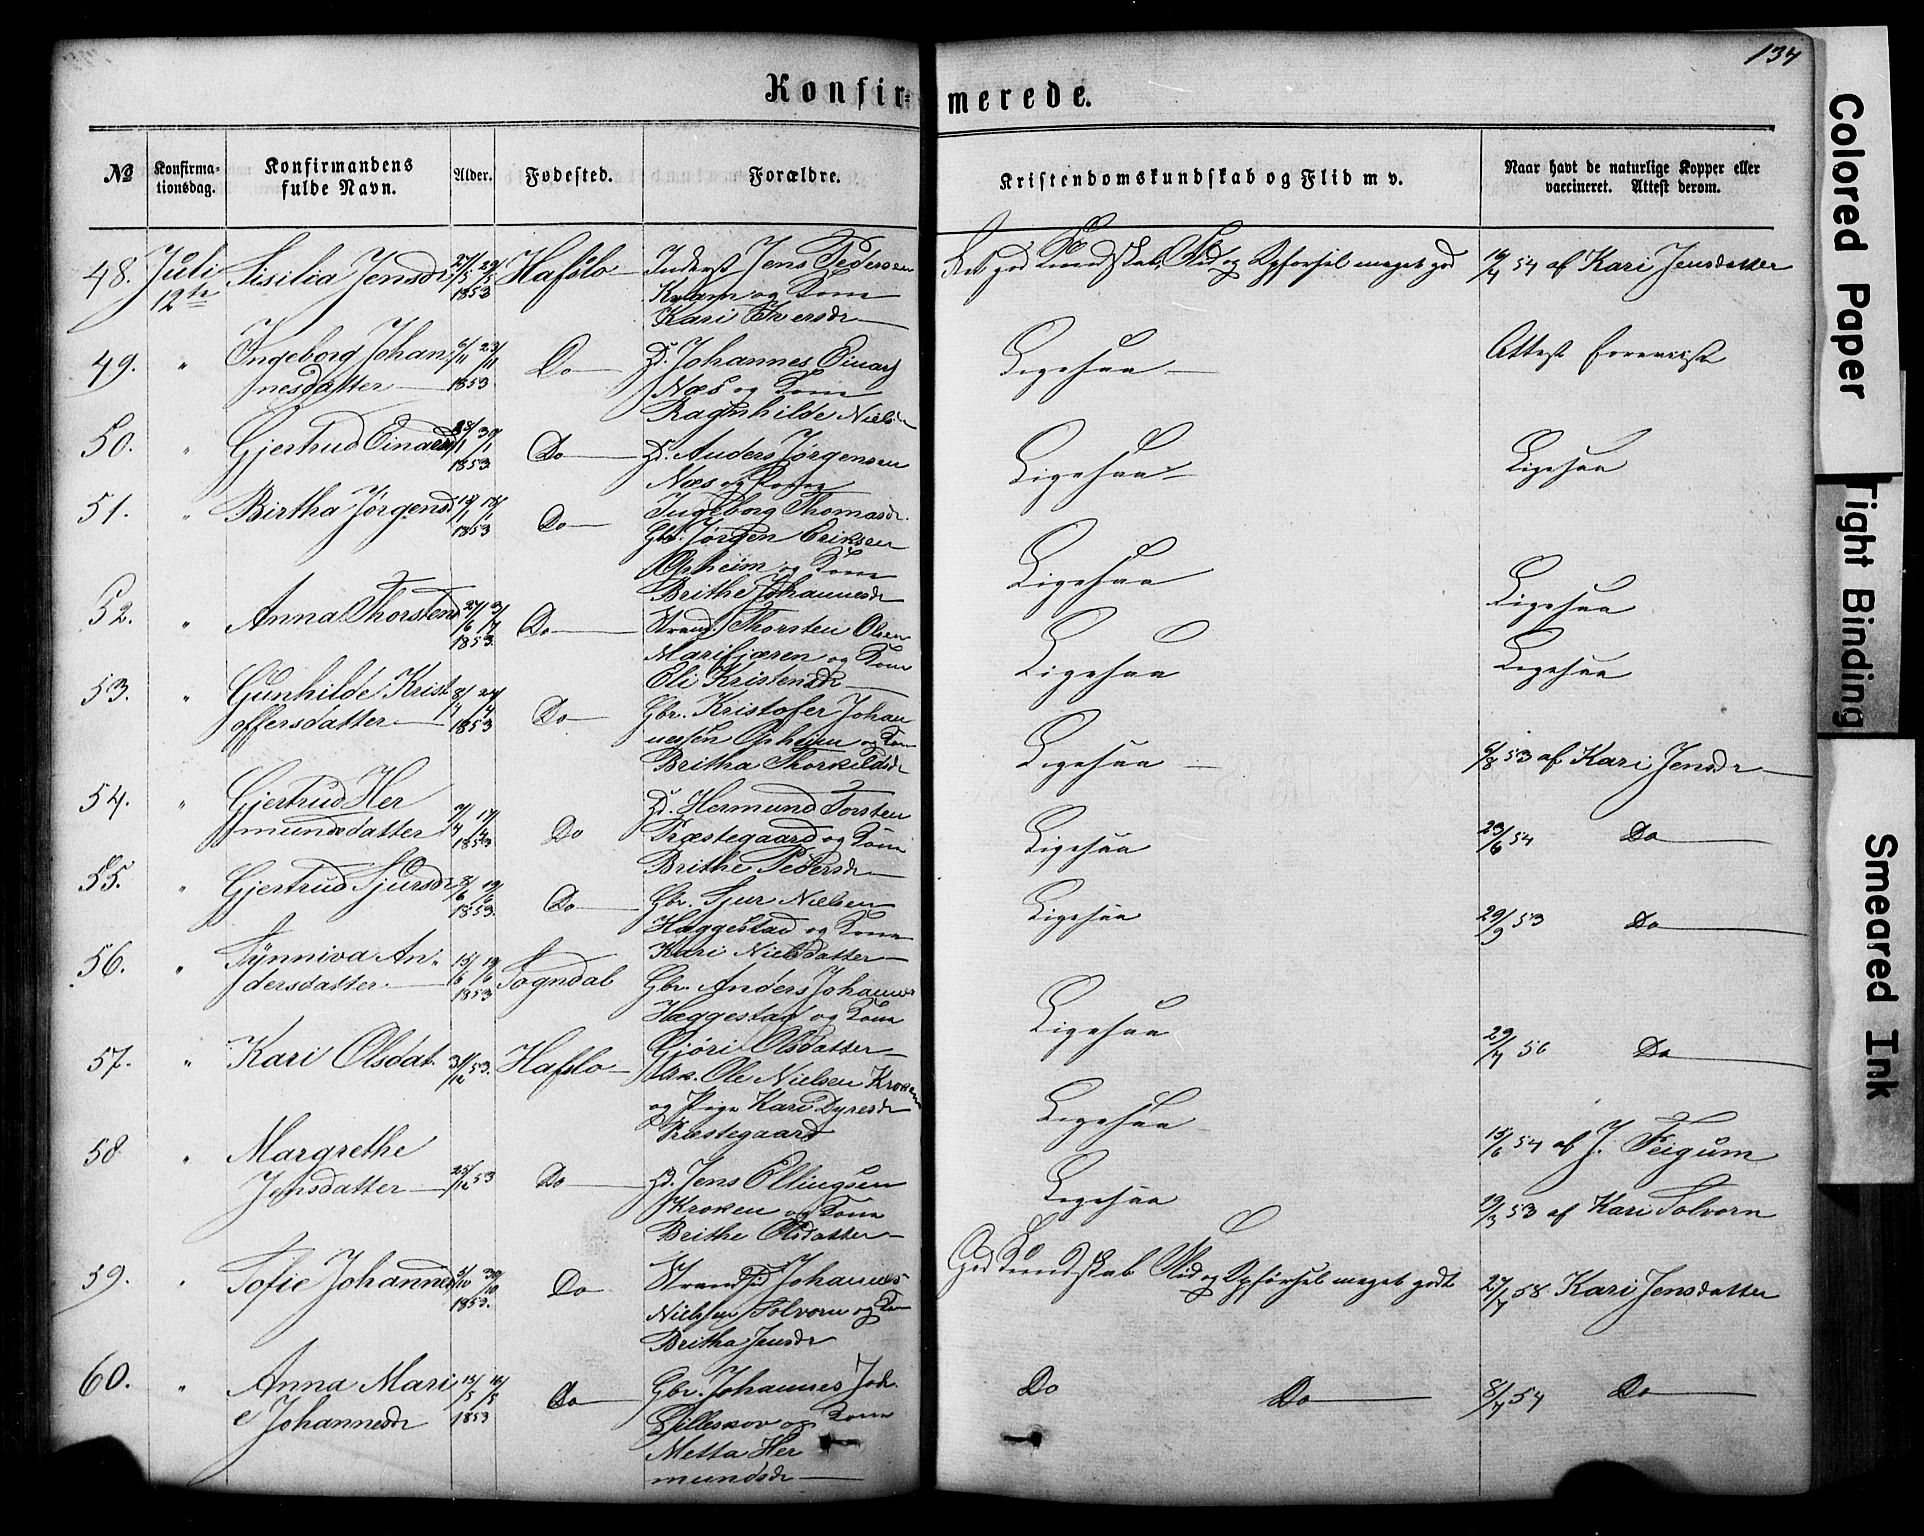 134
Konfir=merede.
No Konfirma-tionsdag. Konfirmandens fulde Navn. Alder. Fødested. Forældre. Kristendomskundskab og Flid m v. Naar havt de naturlige Kopper eller vaccineret. Attest derom.
48. Juli 12te Sisilia Jensdr 27/5 29/5 1853 Hafslo Inderst Jens Pedersen
Kvam og Kone
Kari Iversdr
Et god Kundskab, Flid og Opførsel meget god 19/4 54 af Kari Jensdatter
49. " Ingeborg Johan
nesdatter 6/11 23/11 1853 Do Hd. Johannes Einars
Næs og Kone
Ragnhilde Nielsdr
Ligesaa Attest foreviist
50. " Gjertrud Einarsd 28/1 30/1 1853 Do Hd. Anders Jørgensen
Næs og Kone
Ingeborg Thomasdr.
Ligesaa Ligesaa
51. " Birtha Jørgensd 1853 Do Gbr. Jørgen Eriksen
Opheim og Kone
Brithe Johannesdr
Ligesaa Ligesaa
52. " Anna Thorstensd 27/6 3/7 1853. Do Strands. Thorsten Olsen
Marifjæren og Kone
Eli Kristensdr
Ligesaa Ligesaa
53. " Gunhilde Krist
offersdatter 8/4 24/4 1853 Do Gbr. Kristofer Johan
nessen Opheim og Kone
Britha Thorkildsdr
Ligesaa 6/8 53 af Kari Jensdr
54. " Gjertrud Her
mundsdatter 9/4 17/4 1853 Do Hd. Hermund Torsten
Præstegaard og Kone
Brithe Pedersdr
Ligesaa 23/6 54 Do
55. " Gjertrud Sjursdr 8/6 19/6 1853. Do Gbr. Sjur Nielsen
Hæggestad og Kone
Kari Nielsdatter
Ligesaa 29/9 53 Do
56. " Synniva An-
dersdatter 15/6 19/6 1853 Sogndal Gbr. Anders Johannes
Hæggestad og Kone
Gjøri Olsdatter
Ligesaa 29/7 56 Do
57. " Kari Olsdat. 31/12 53. Hafslo Ole Nielsen Kroken
og Pige Kari Dyresdr
Præstegaard
Ligesaa 15/6 54 af J. Feigum
58 " Margrethe
Jensdatter 25/12 53 Do Hd. Jens Ellingsen
Kroken og Kone
Brithe Olsdatter
Ligesaa 19/3 53 af Kari Solvorn
59. " Sofie Johannesd 5/10 30/10 1853. Do Strands. Johannes
Nielsen Solvorn og Kone
Britha Jensdr
God Kundskab Flid og Opførsel meget godt 27/7 58 Kari Jensdatter
60. " Anna Mari
e Johannesdr 12/5 16/5 1853 Do Gbr. Johannes Joh.
Lilleskov og Kone
Metta Her
mundsdr
Do Do 8/7 54 Do
Colored Paper
Tight Binding
Smeared Ink